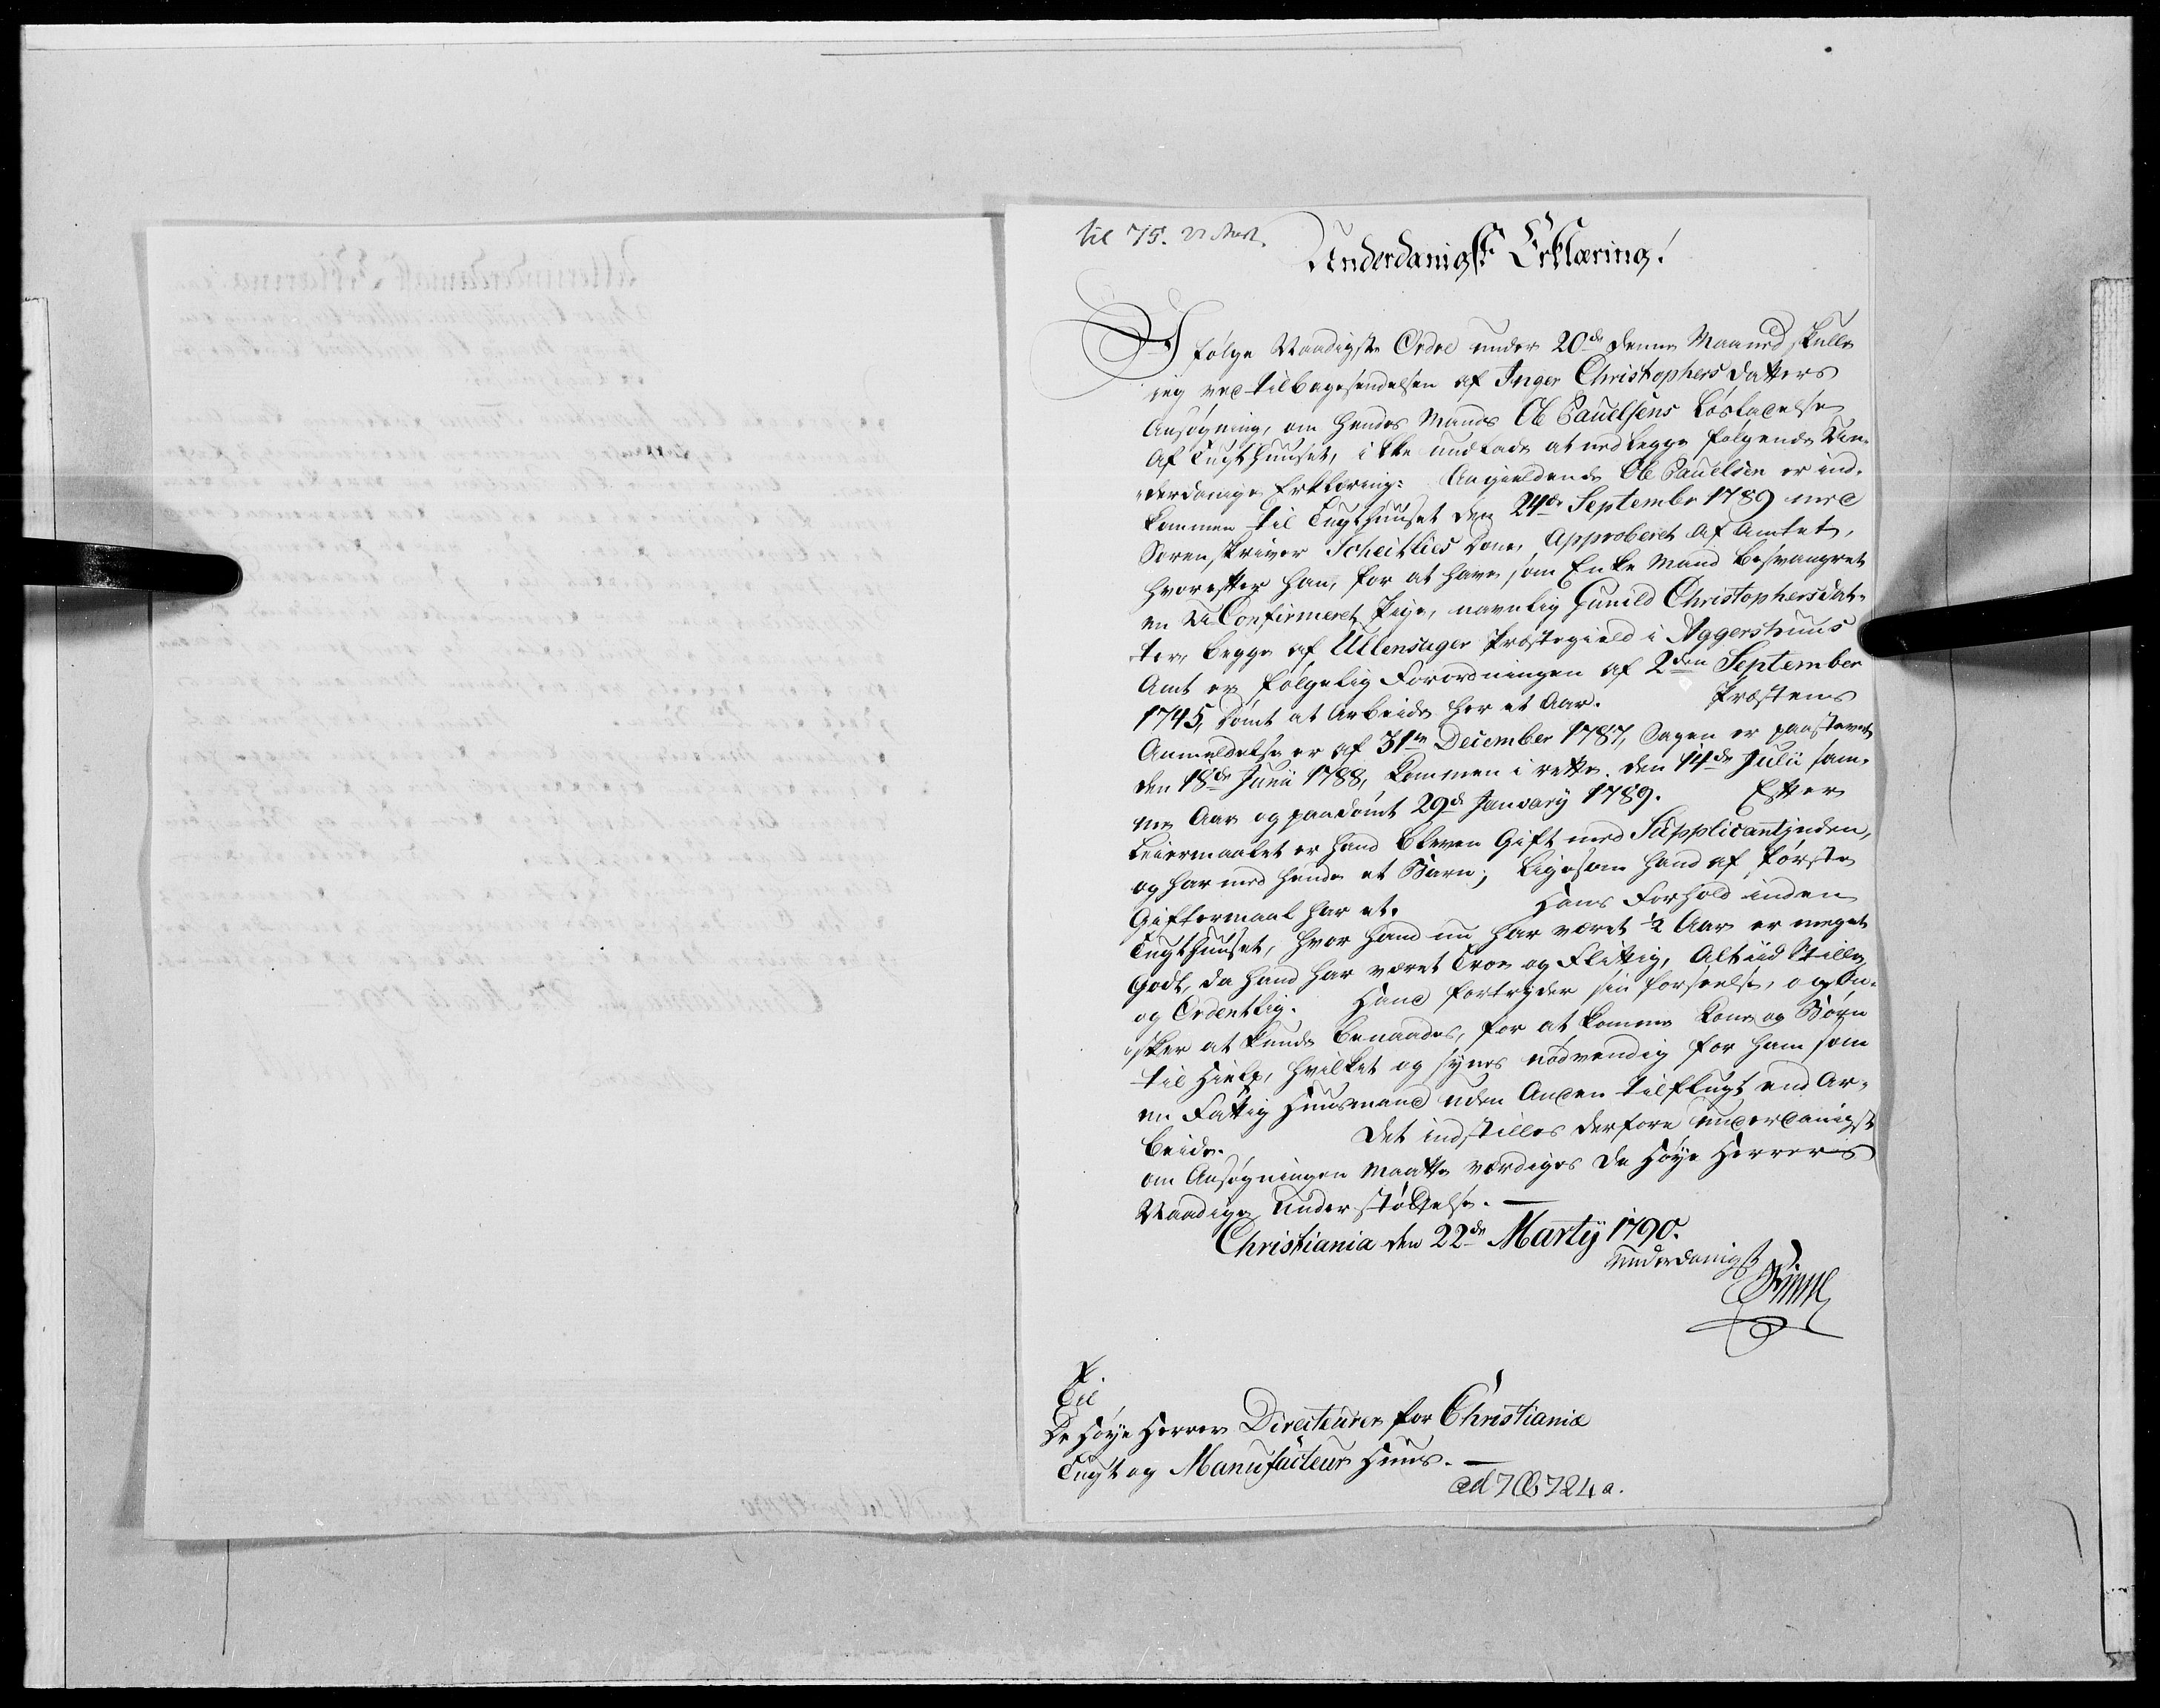 til 75.
Underdanigst Erklæring!
I følge Naadigste Ordre under 20de denne Maaned skulle
jeg ved tilbagesendelsen af Inger Christophersdatters
Ansøgning, om hendes Mands Ole Pauelsens Løsladelse
af Tugthuuset, ikke undlade at nedlegge følgende Un-
derdanige Erklæring: Angieldende Ole Pauelsen er ind-
kommen til Tugthuuset den 24de September 1789 med
Sorenskriver Scheitlies Dom, Approberet af Amtet,
hvorefter han, for at have som Enke Mand besvangret
en U Confirmeret Pige, navnlig Gunild Christophersdat-
ter, begge af Ullensager Præstegield i Aggershuus
Amt er følgelig Forordningen af 2den September
1745, dømt at Arbeide her et Aar. Præstens
Anmeldelse er af 31te December 1787, Sagen er paastevnt
den 18de Junii 1788, kommen i rette den 14de Julii sam-
me Aar og paadømt 29de January 1789. Efter
Leiermaalet er hand bleven Gift med Supplicantinden,
og har med hende et Barn; ligesom hand af første
Giftermaal har et. Hans Forhold inden
Tugthuuset, hvor hand nu har været ½ Aar er meget
Godt, da hand har været Troe og Flittig, Altiid Stille
og Ordentlig. Hand fortryder sin forseelse, og Øn-
sker at kunde benaades, for at komme Kone og Børn
til Hielp, hvilket og synes nødvendig for ham som
en Fattig Huusmand uden Anden tilflugt end Ar-
beide. Det indstilles derfore underdanigst
om Ansøgningen maatte værdiges De Høye Herrers
Naadige Understøttelse.
Christiania den 22de Martÿ 1790.
Underdanigst
Til
De Høye Herrer Directeurer for Christianiæ
Tugt og Manufacteur Huus.
ad 7 B 724 a.